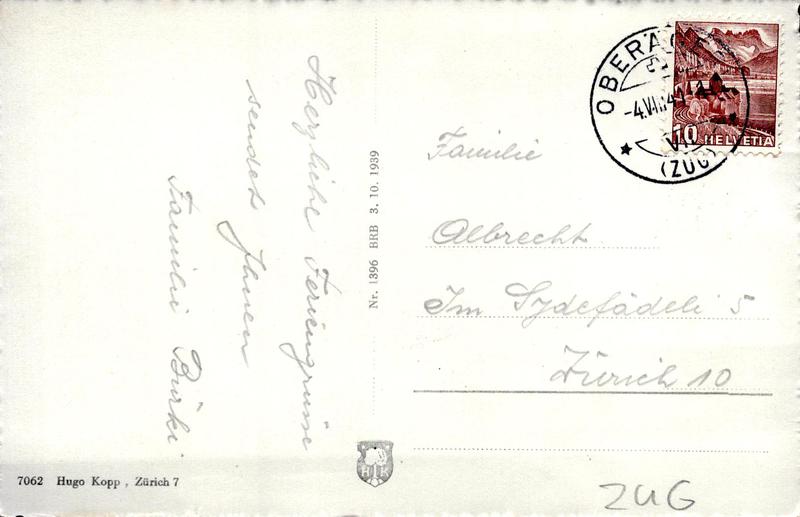 Herzliche Feriengrüsse
sendet Ihnen
Familie Bürki.
Nr. 1396 BRB 3. 10. 1939
Familie
Albrecht.
Im Sydefädeli 5
Zürich 10
10 HELVETIA
(ZUG)
HK
7062 Hugo Kopp, Zürich 7
ZUG